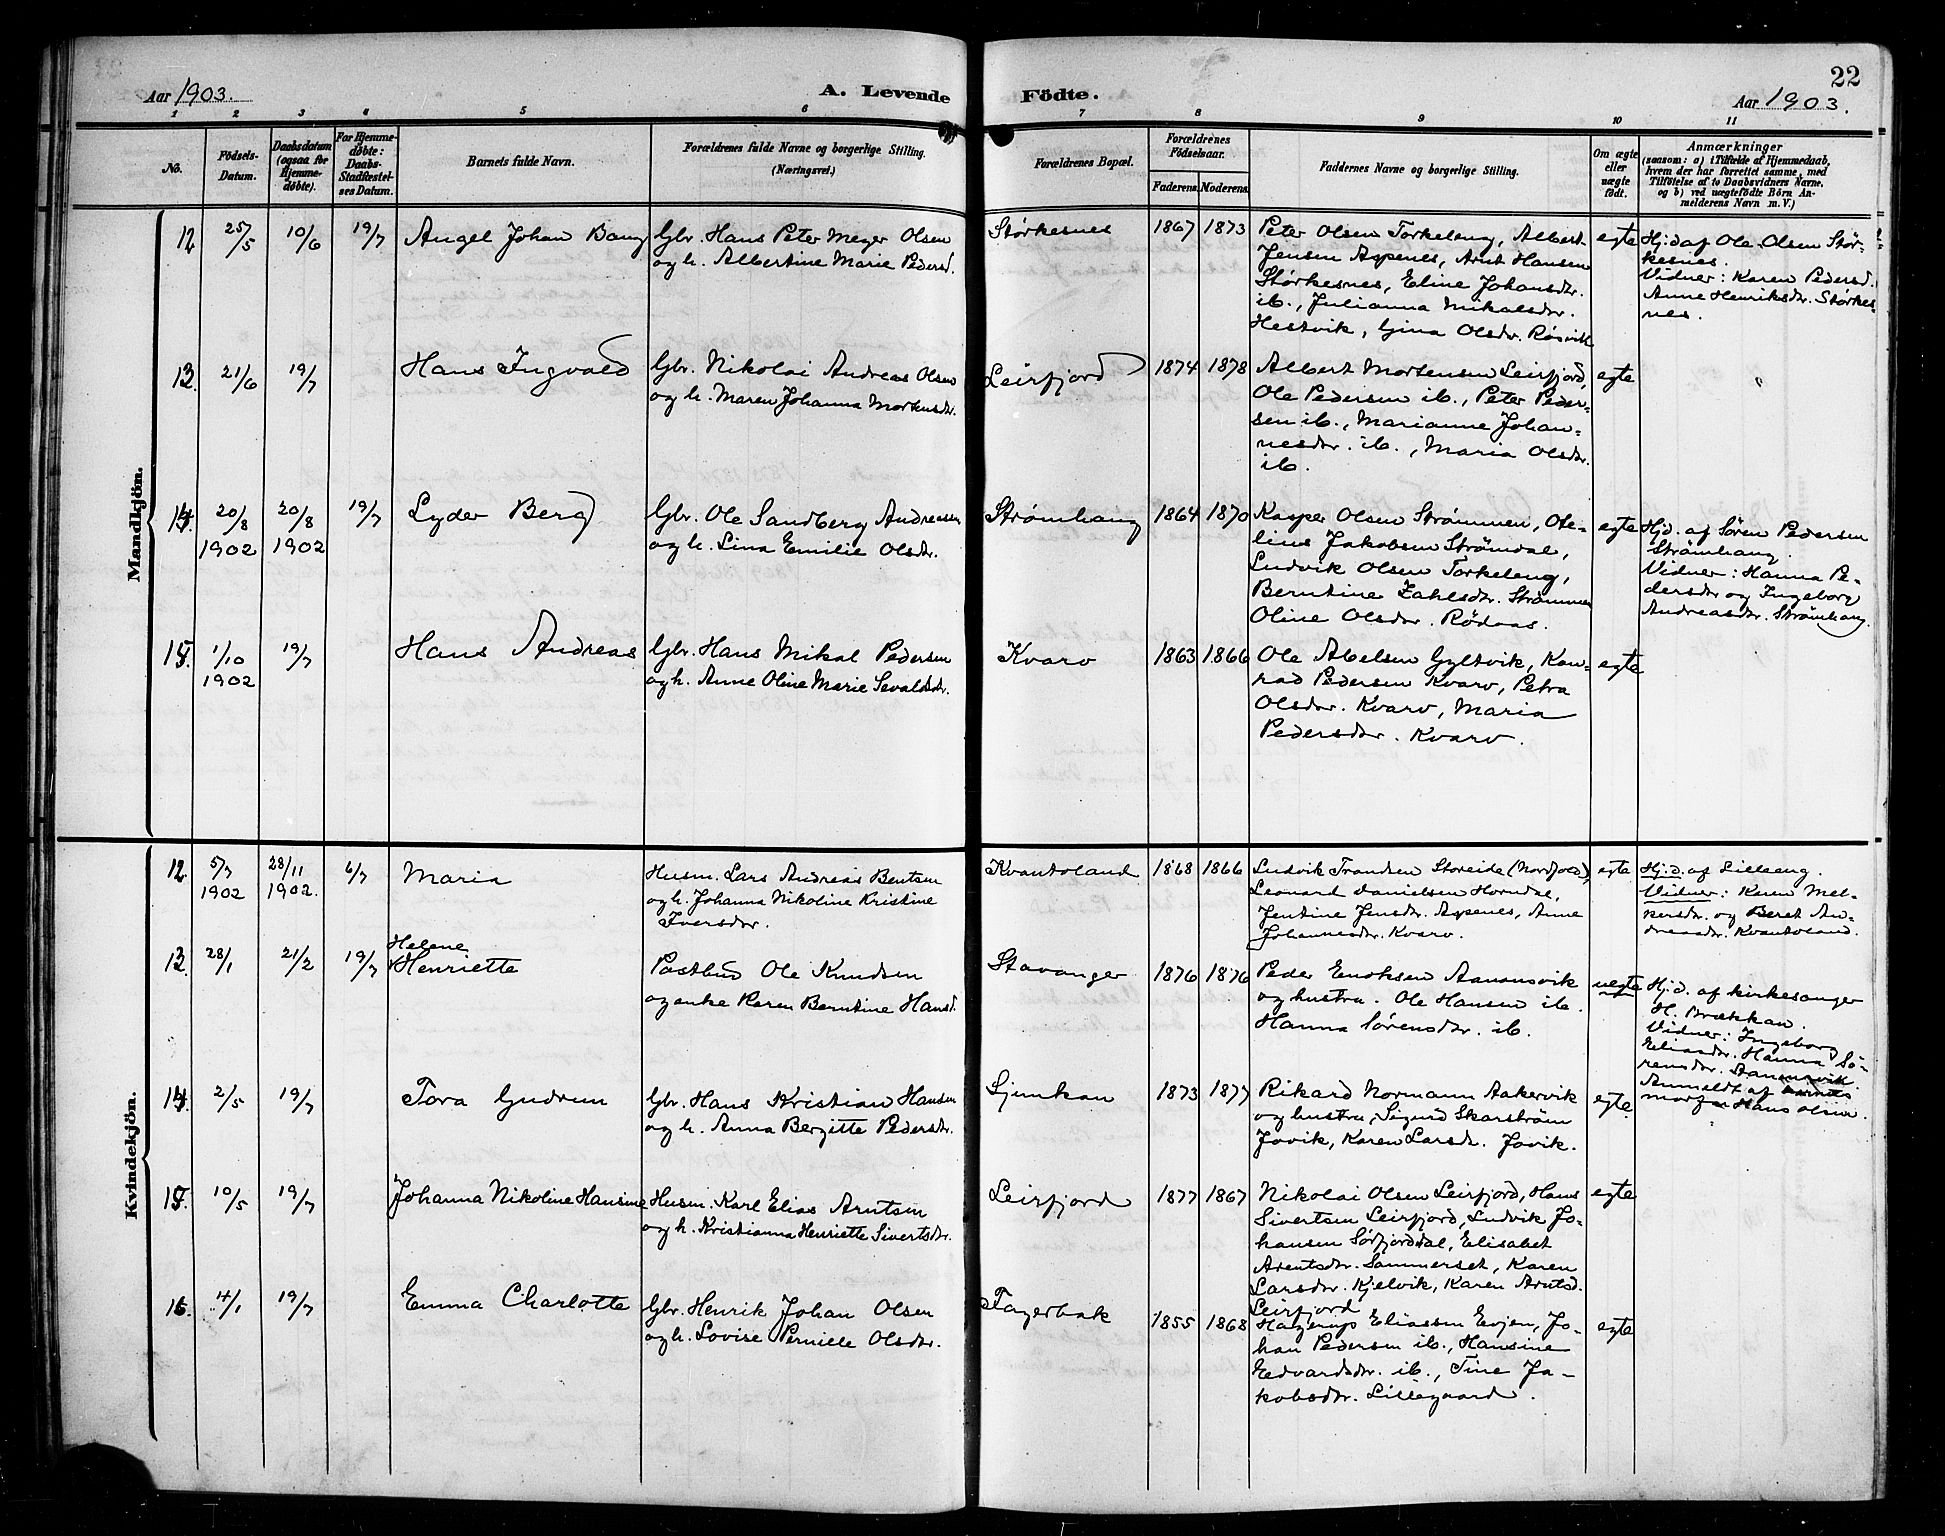 Aar 1903.
A. Levende Födte.
22
Aar 1903.
1 2 3 4 5 6 7 8 9 10 11
No.
Födsels-Datum.
Daabsdatum (ogsaa for Hjemmedøbte).
For Hjemmedøbte: Daabs-Stadfæstelses Datum.
Barnets fulde Navn.
Forældrenes fulde Navne og borgerlige Stilling.
(Næringsvei.)
Forældrenes Bopæl.
Forældrenes Födselsaar.
Faderens. Moderens.
Faddernes Navne og borgerlige Stilling.
Om ægte eller uægte födt.
Anmærkninger
(saasom: a) i Tilfælde af Hjemmedaab,
hvem der har forrettet samme, med
Tilföielse af to Daabsvidners Navne,
og b) ved uægtefödte Börn Anmelderens Navn m. V.)
Mandkjön.
12. 25/5 10/6 19/7 Angel Johan Bang
Gbr. Hans Peter Meyer Olsen
og h. Albertine Marie Pedersd.
Størkesnes 1867 1873
Peter Olsen Torkeleng, Albert
Jensen Aspenes, Arnt Hansen
Størkesnes, Eline Johansdtr.
ib., Julianna Mikalsdtr.
Hestvik, Gina Olsdtr. Røsvik
egte
Hj.d af Ole Olsen Stør-
kesnes.
Vidner: Karen Pedersd.
Anne Henriksdtr. Størkes
nes.
13. 21/6 19/7 Hans Ingvald
Gbr. Nikolai Andreas Olsen
og h. Maren Johanna Mortensdtr.
Leirfjord 1874 1878
Albert Mortensen Leirfjord,
Ole Pedersen ib., Peter Peder-
sen ib., Marianne Johan-
nesdtr. ib., Maria Olsdtr.
ib.
egte
14. 20/8 1902 20/8 1902 19/7 Lyder Berg
Gbr. Ole Sandberg Andreasen
og h. Lina Emilie Olsdtr.
Strømhaug 1864 1870
Kasper Olsen Strømmen, Ote-
lius Jakobsen Strømdal,
Ludvik Olsen Torkeleng,
Berntine Zahlsdtr. Strømmen
Oline Olsdtr. Rødaas.
egte
Hj.d. af Søren Pedersen
Strømhaug.
Vidner: Hanna Pe-
dersdtr og Ingeborg
Andreasdtr. Strømhaug.
15. 1/10 1902 19/7 Hans Andreas
Gbr. Hans Mikal Pedersen
og h. Anne Oline Marie Sevaldsdtr.
Kvarv 1863 1866
Ole Abelsen Gyltvik, Kon-
rad Pedersen Kvarv, Petra
Olsdtr. Kvarv, Maria
Pedersdtr. Kvarv.
egte
Kvindekjön.
12. 5/7 1902 28/11 1902. 6/7 Maria
Husm. Lars Andreas Bentsen
og h. Johanna Nikoline Kristine
Iversdtr.
Kvantoland 1868 1866
Ludvik Trondsen Storeide (Nordfold),
Leonard Danielsen Horndal,
Jentine Jensdtr. Aspenes, Anne
Johannesdtr. Kvarv.
egte
Hj.d. af Lilleeng.
Vidner: Karen Mel-
kersdtr. og Beret An-
dreasdtr. Kvantoland.
13. 28/1 21/2 19/7 Helene
Henriette
Postbud Ole Knudsen
og enke Karen Berntine Hansd.
Stavanger 1876 1876
Peder Enoksen Aanonsvik
og hustru. Ole Hansen ib.
Hanna Sørensdtr. ib.
uegte
Hj.d. af kirkesanger
H. Brækkan.
Vidner: Ingeborg
Eliasdtr. Hanna Sö-
rensdtr.
Anmeldt af barnets
morfar Hans Olsen.
14. 2/5 19/7 Tora Gudrun
Gbr. Hans Kristian Hansen
og h. Anna Bergitte Pedersdtr.
Sjunkan 1873 1877
Rikard Normann Aakervik
og hustru, Sigurd Skarstrøm
Jovik, Karen Larsd. Jovik.
egte
15. 10/5 19/7 Johanna Nikoline Hansine
Husm. Karl Elias Arntsen
og h. Kristianna Henriette Sivertsdtr.
Leirfjord 1877 1867
Nikolai Olsen Leirfjord, Hans
Sivertsen Leirfjord, Ludvik Jo-
hansen Sørfjorddal, Elisabet
Arentsdtr. Sommerset, Karen
Larsdtr. Kjelvik, Karen Arntsd.
Leirfjord
egte
16. 4/1 19/7 Emma Charlotte
Gbr. Henrik Johan Olsen
og h. Lovise Pernille Olsdtr.
Fagerbak 1855 1868
Hagerup Eliassen Evjen, Jo-
han Pedersen ib., Hansine
Edvardsdtr. ib., Tine Ja-
kobsdtr. Lillegaard.
egte